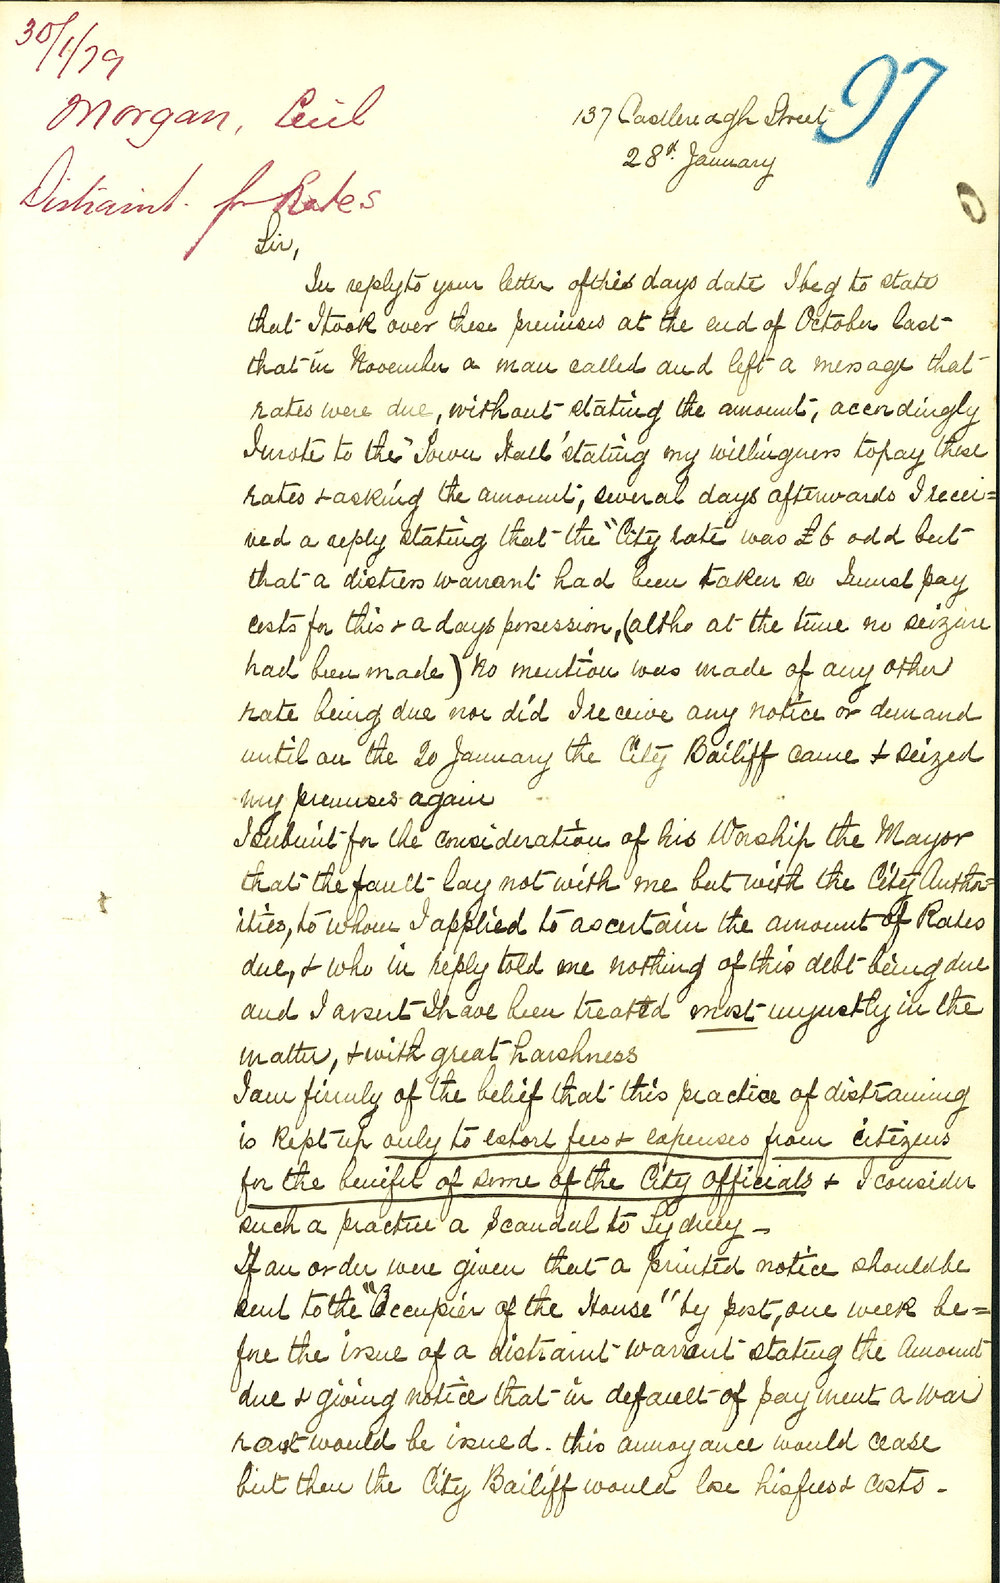 30/1/79
Morgan, Cecil
Distraint for Rates
97
137 Castlereagh Street
28th January
Sir,
In reply to your letter of this days date I beg to state
that I took over these premises at the end of October last
that in November a man called and left a message that
rates were due, without stating the amount, accordingly
I wrote to the "Town Hall" stating my willingness to pay these
rates & asking the amount, several days afterwards I recei=
ved a reply stating that the "City rate was £6 odd but
that a distress warrant had been taken so I must pay
costs for this & a days possession, (altho at the time no seizure
had been made) No mention was made of any other
rate being due nor did I receive any notice or demand
until on the 20 January the City Bailiff came & seized
my premises again
I submit for the consideration of his Worship the Mayor
that the fault lay not with me but with the City Author=
ities, to whom I applied to ascertain the amount of Rates
due, & who in reply told me nothing of this debt being due
and I assert I have been treated most unjustly in the
matter, & with great harshness
I am firmly of the belief that this practice of distraining
is kept up only to extort fees & expenses from citizens
for the benefit of some of the City officials & I consider
such a practice a Scandal to Sydney -
If an order were given that a printed notice should be
sent to the "Occupier of the House" by post, one week be=
fore the issue of a distraint warrant stating the Amount
due & giving notice that in default of payment a War
rant would be issued. this annoyance would cease
but then the City Bailiff would lose his fees & costs -